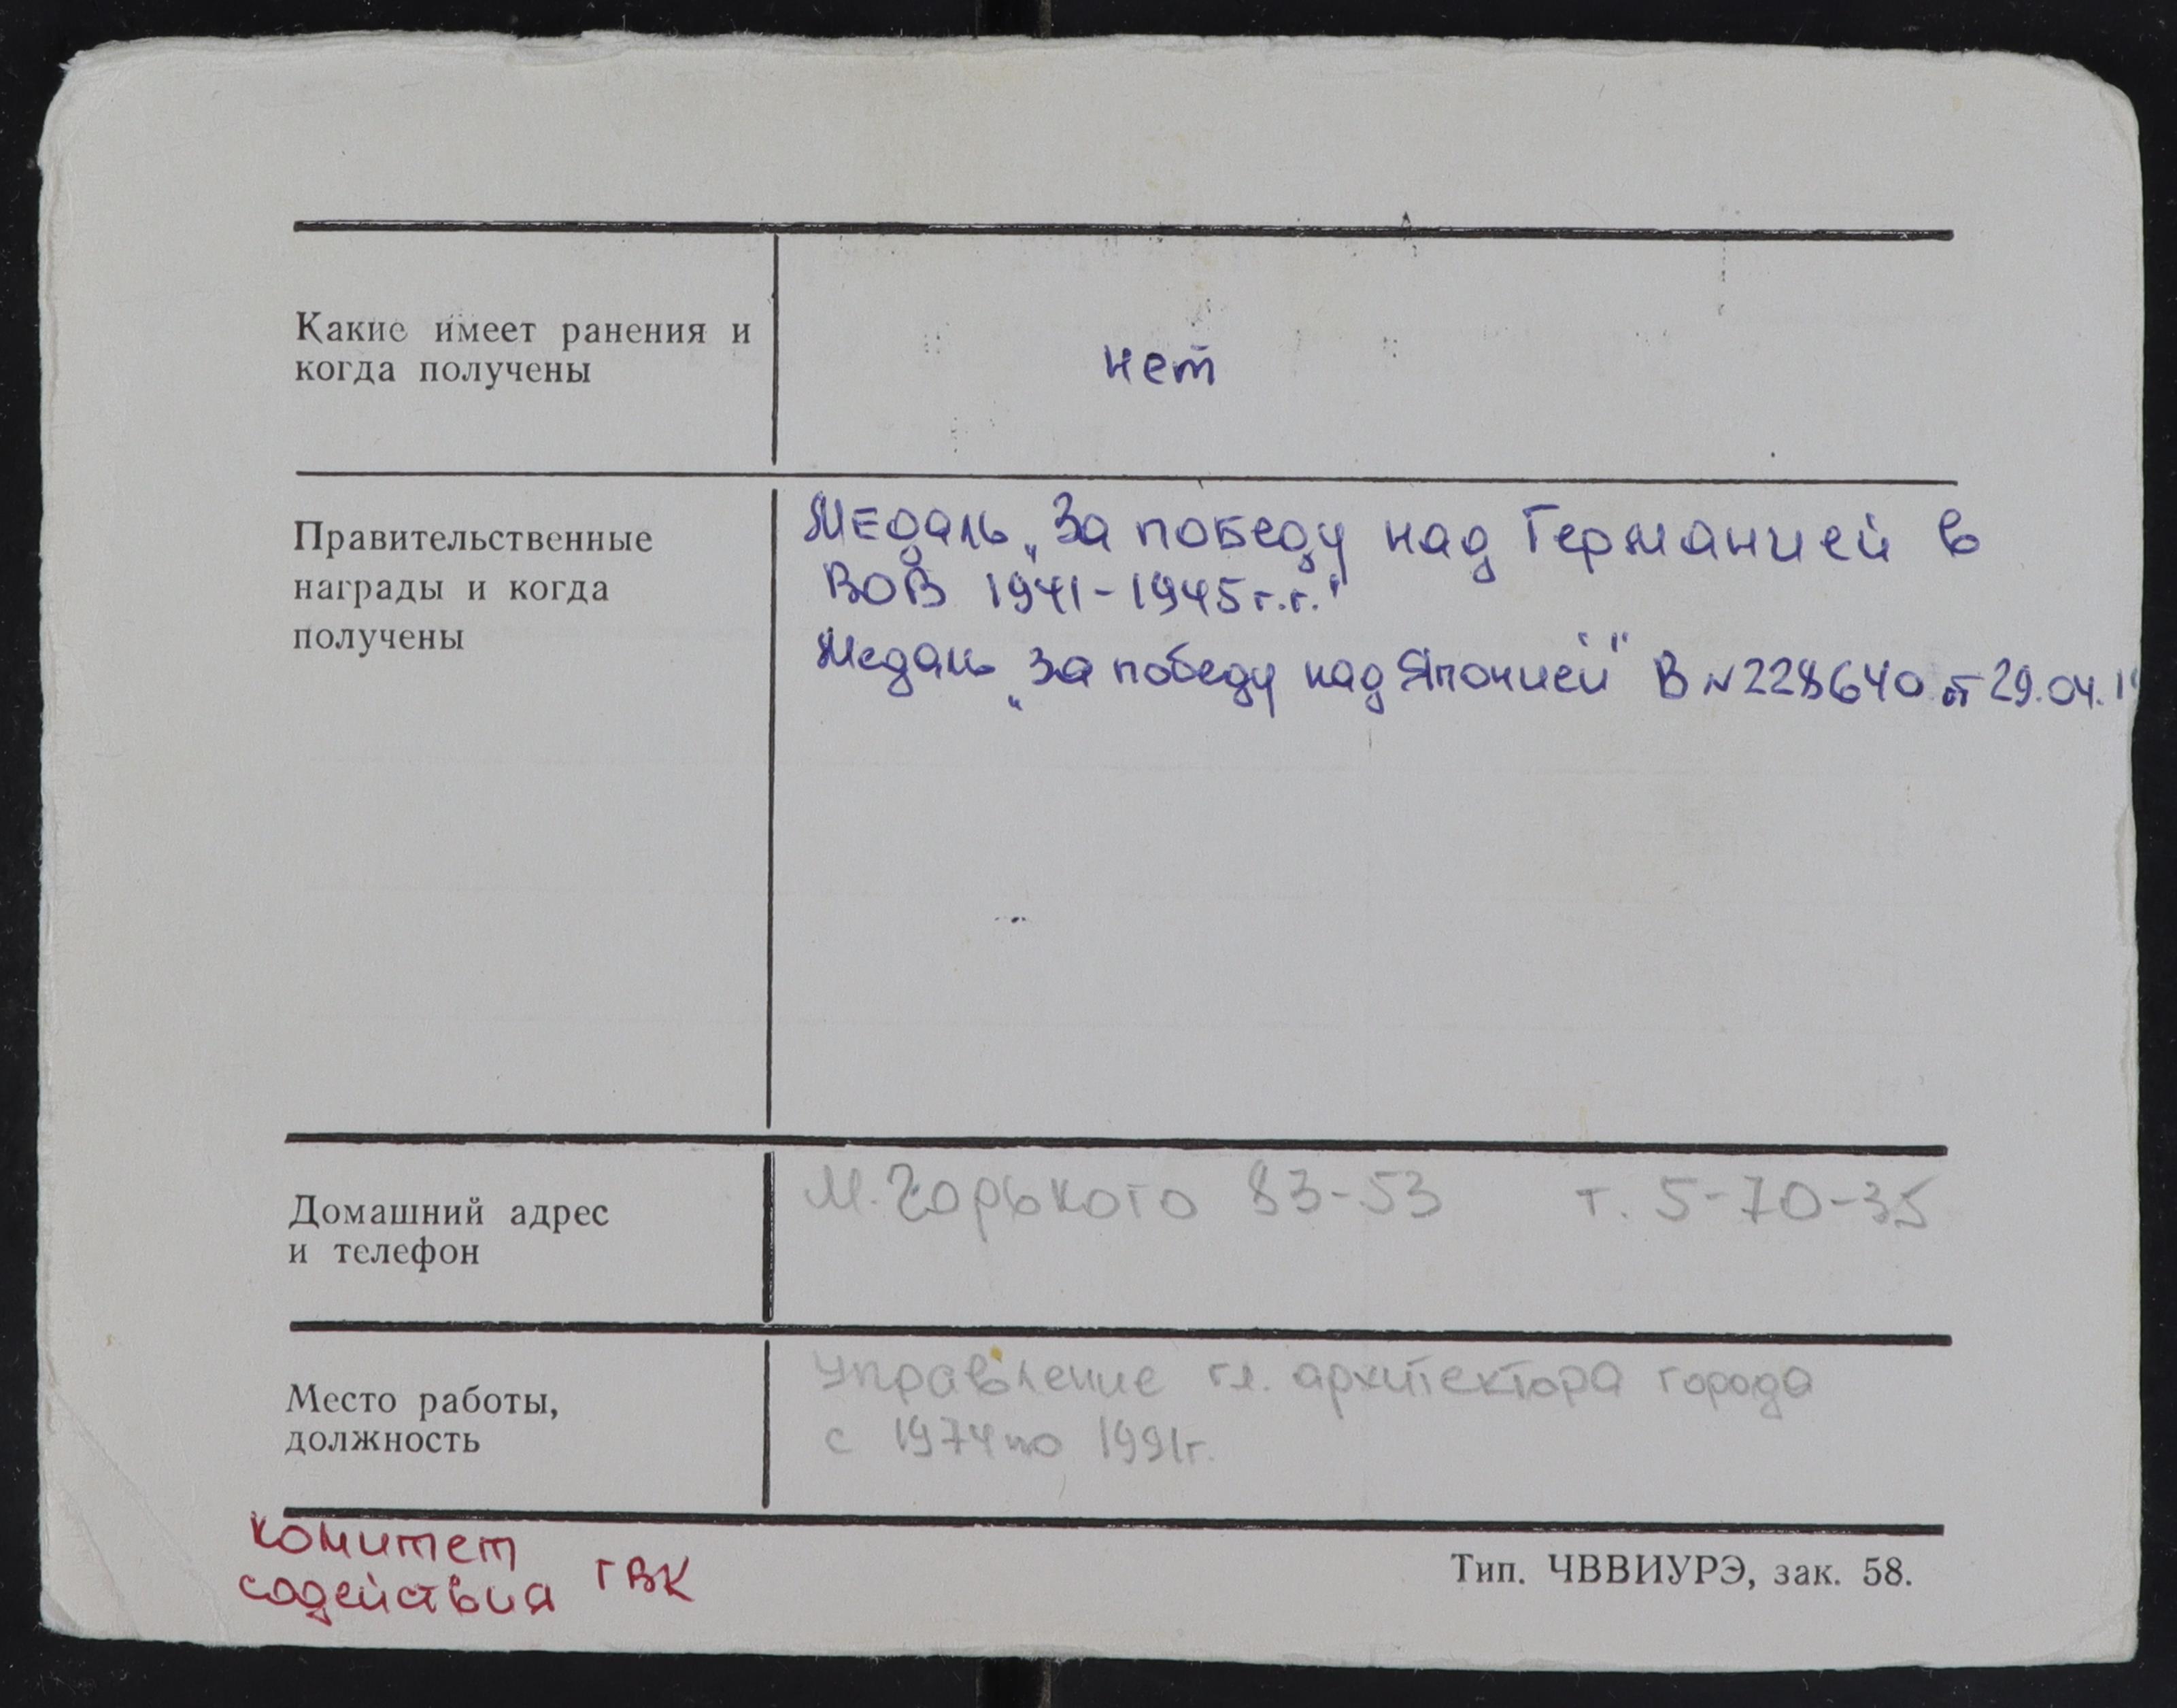 Какие имеет ранения и
когда получены
нет
Правительственные
награды и когда
получены
Медаль „За победу над Германией в
ВОВ 1941-1945г.г."
Медаль „За победу над Японией" В №228640 от 29.04.1
Домашний адрес
и телефон
М. Горького 83-53 т. 5-70-35
Место работы,
должность
Управление гл. архитектора города
с 1974 по 1991г.
комитет
содействия ГВК
Тип. ЧВВИУРЭ, зак. 58.